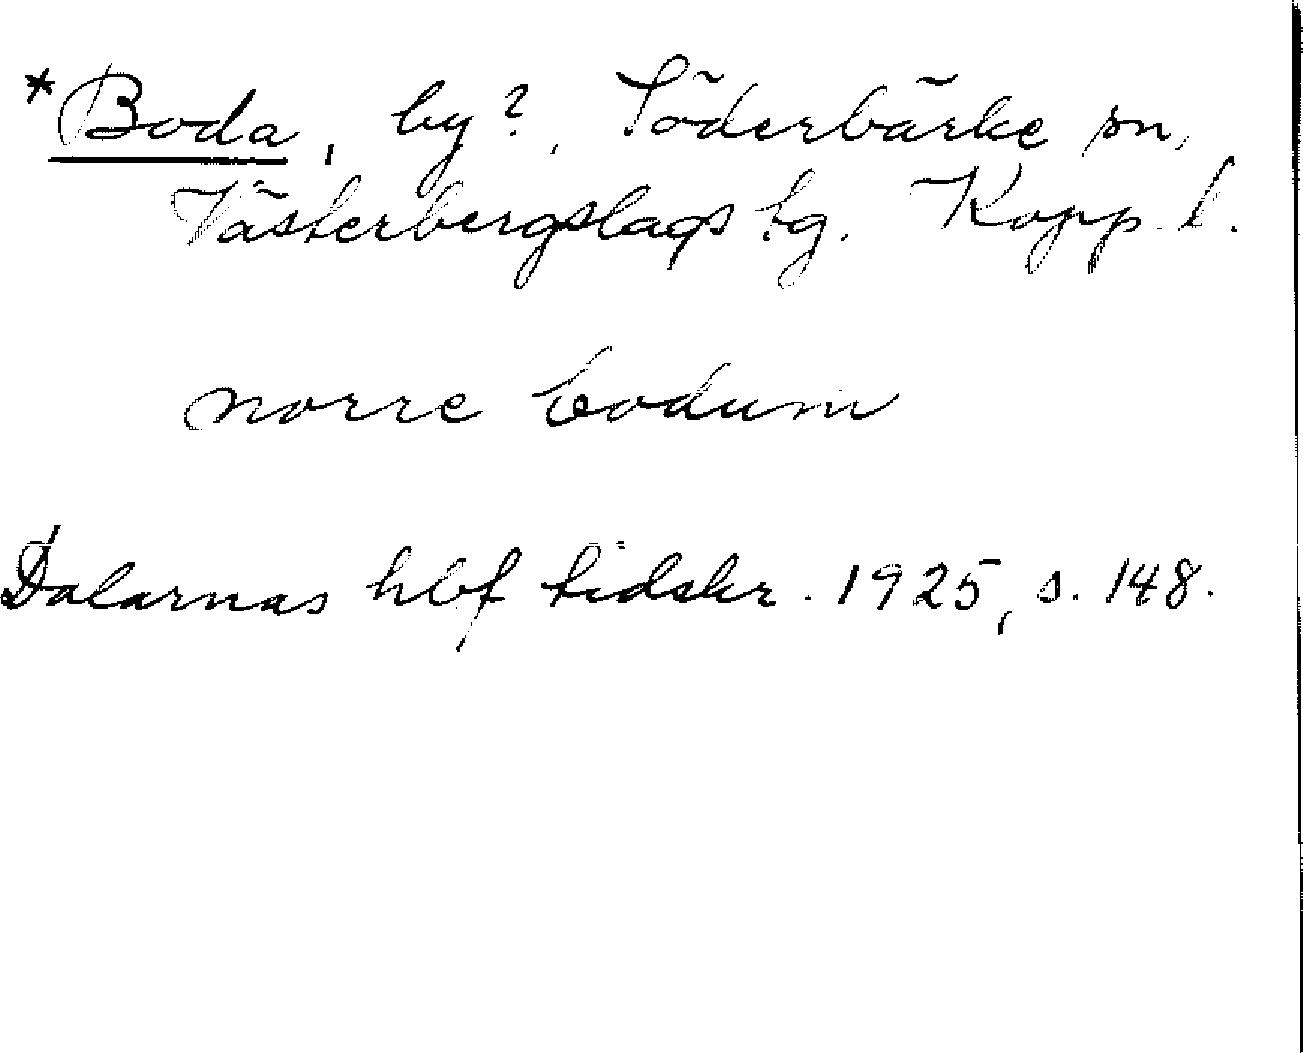 *Boda, by?, Söderbärke sn,
Västerbergslags tg. Kopp. l.
norre bodum
Dalarnas hbf tidskr. 1925, s. 148.